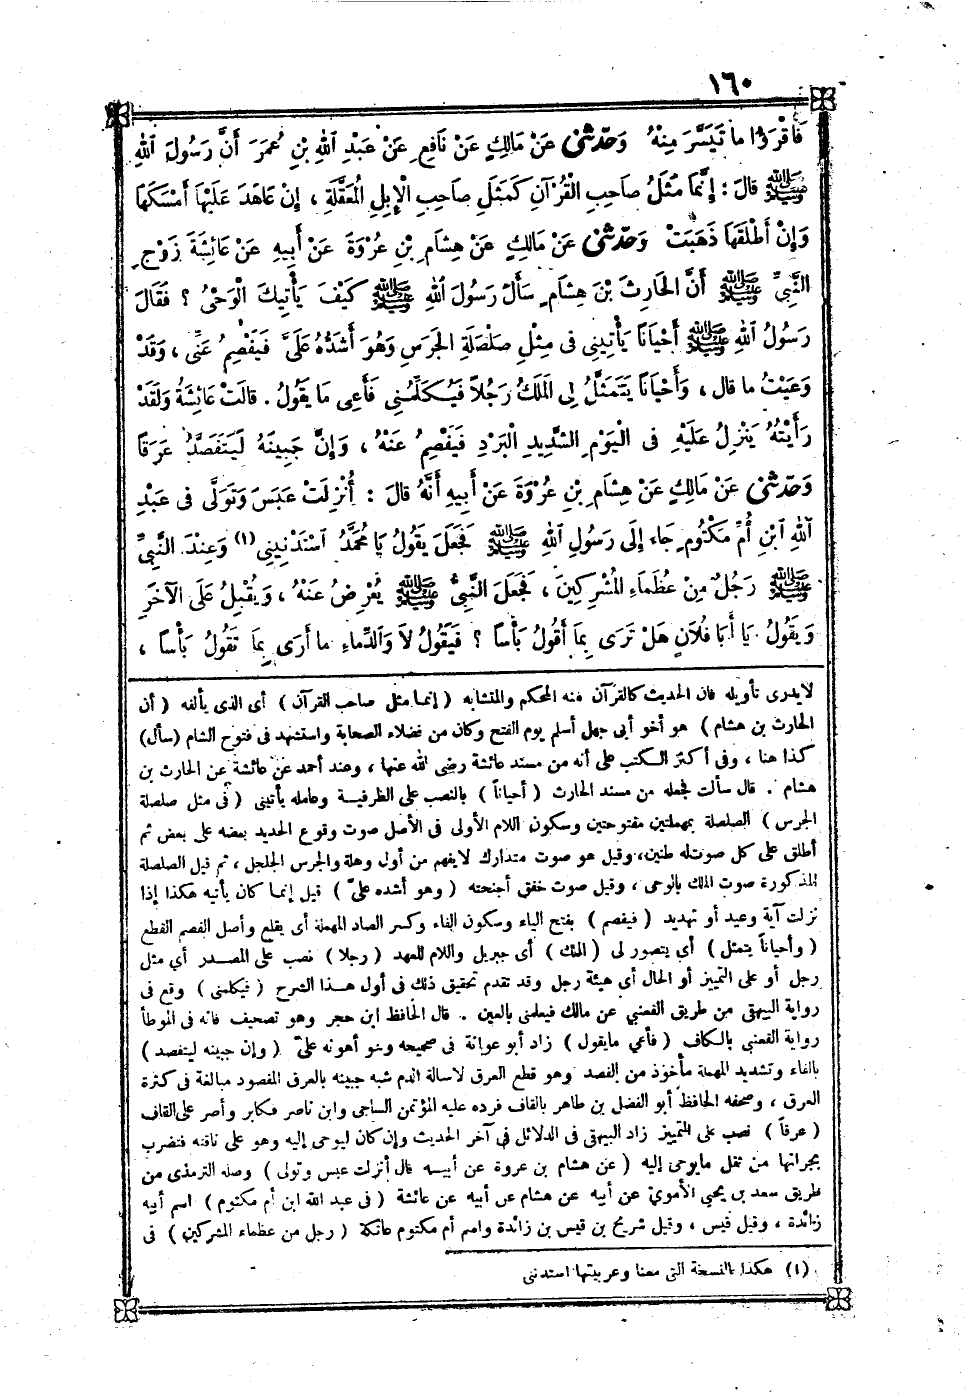 ١٦٠
فَاقْرَؤُا مَا تَيَسَّرَ مِنْهُ وَحَدَّثَنِي عَنْ مَالِكٍ عَنْ نَافِعٍ عَنْ عَبْدِ اللهِ بْنِ عُمَرَ أَنَّ رَسُولَ اللهِ
ﷺ قَالَ : إِنَّمَا مَثَلُ صَاحِبِ الْقُرْآنِ كَمَثَلِ صَاحِبِ الْإِبِلِ الْمُعَقَّلَةِ ، إِنْ عَاهَدَ عَلَيْهَا أَمْسَكَهَا
وَإِنْ أَطْلَقَهَا ذَهَبَتْ وَحَدَّثَنِي عَنْ مَالِكٍ عَنْ هِشَامِ بْنِ عُرْوَةَ عَنْ أَبِيهِ عَنْ عَائِشَةَ زَوْجِ
النَّبِيِّ ﷺ أَنَّ الْحَارِثَ بْنَ هِشَامٍ سَأَلَ رَسُولَ اللهِ ﷺ كَيْفَ يَأْتِيكَ الْوَحْيُ ؟ فَقَالَ
رَسُولُ اللهِ ﷺ أَحْيَانًا يَأْتِينِي فِي مِثْلِ صَلْصَلَةِ الْجَرَسِ وَهُوَ أَشَدُّهُ عَلَيَّ فَيَفْصِمُ عَنِّي ، وَقَدْ
وَعَيْتُ مَا قَالَ ، وَأَحْيَانًا يَتَمَثَّلُ لِي الْمَلَكُ رَجُلًا فَيُكَلِّمُنِي فَأَعِي مَا يَقُولُ . قَالَتْ عَائِشَةُ وَلَقَدْ
رَأَيْتُهُ يَنْزِلُ عَلَيْهِ فِي الْيَوْمِ الشَّدِيدِ الْبَرْدِ فَيَفْصِمُ عَنْهُ ، وَإِنَّ جَبِينَهُ لَيَتَفَصَّدُ عَرَقًا
وَحَدَّثَنِي عَنْ مَالِكٍ عَنْ هِشَامِ بْنِ عُرْوَةَ عَنْ أَبِيهِ أَنَّهُ قَالَ : أُنْزِلَتْ عَبَسَ وَتَوَلَّى فِي عَبْدِ
اللهِ ابْنِ أُمِّ مَكْتُومٍ جَاءَ إِلَى رَسُولِ اللهِ ﷺ فَجَعَلَ يَقُولُ يَا مُحَمَّدُ اسْتَدْنِينِي (١) وَعِنْدَ النَّبِيِّ
ﷺ رَجُلٌ مِنْ عُظَمَاءِ الْمُشْرِكِينَ ، فَجَعَلَ النَّبِيُّ ﷺ يُعْرِضُ عَنْهُ ، وَيُقْبِلُ عَلَى الْآخَرِ
وَيَقُولُ يَا أَبَا فُلَانٍ هَلْ تَرَى بِمَا أَقُولُ بَأْسًا ؟ فَيَقُولُ لَا وَالدِّمَاءِ مَا أَرَى بِمَا تَقُولُ بَأْسًا ،
لايدرى تأويله فان الحديث كالقرآن منه المحكم والمتشابه ( إنما مثل صاحب القرآن ) أى الذى يألفه ( أن
الحارث بن هشام ) هو أخو أبى جهل أسلم يوم الفتح وكان من فضلاء الصحابة واستشهد فى فتوح الشام (سأل)
كذا هنا ، وفى أكثر الكتب على أنه من مسند عائشة رضى الله عنها ، وعند أحمد عن عائشة عن الحارث بن
هشام . قال سألت فجعله من مسند الحارث ( أحياناً ) بالنصب على الظرفية وعامله يأتينى ( فى مثل صلصلة
الجرس ) الصلصلة بمهملتين مفتوحتين وسكون اللام الأولى فى الأصل صوت وقوع الحديد بعضه على بعض ثم
أطلق على كل صوت له طنين، وقيل هو صوت متدارك لايفهم من أول وهلة والجرس الجلجل ، ثم قيل الصلصلة
المذكورة صوت الملك بالوحى ، وقيل صوت خفق أجنحته ( وهو أشده علىّ ) قيل إنما كان يأتيه هكذا إذا
نزلت آية وعيد أو تهديد ( فيفصم ) بفتح الياء وسكون الفاء وكسر الصاد المهملة أى يقلع وأصل الفصم القطع
( وأحياناً يتمثل ) أي يتصور لى ( الملك ) أى جبريل واللام للعهد ( رجلا ) نصب على المصدر أي مثل
رجل أو على التمييز أو الحال أى هيئة رجل وقد تقدم تحقيق ذلك فى أول هذا الشرح ( فيكلمنى ) وقع فى
رواية البيهقى من طريق القعنبي عن مالك فيعلمنى بالعين . قال الحافظ ابن حجر وهو تصحيف فانه فى الموطأ
رواية القعنبى بالكاف ( فأعي مايقول ) زاد أبو عوانة فى صحيحه وهو أهونه علىّ ( وإن جبينه ليتفصد )
بالفاء وتشديد المهملة مأخوذ من الفصد وهو قطع العرق لاسالة الدم شبه جبينه بالعرق المفصود مبالغة فى كثرة
العرق ، وصحفه الحافظ أبو الفضل بن طاهر بالقاف فرده عليه المؤتمن الساجى وابن ناصر فكابر وأصر على القاف
( عرقاً ) نصب على التمييز زاد البيهقى فى الدلائل في آخر الحديث وإن كان ليوحى إليه وهو على ناقته فتضرب
بجرانها من ثقل مايوحى إليه ( عن هشام بن عروة عن أبيه قال أنزلت عبس وتولى ) وصله الترمذى من
طريق سعد بن يحيى الأموى عن أبيه عن هشام عن أبيه عن عائشة ( فى عبد الله ابن أم مكتوم ) اسم أبيه
زائدة ، وقيل قيس ، وقيل شريح بن قيس بن زائدة واسم أم مكتوم عاتكة ( رجل من عظماء المشركين ) فى
(١) هكذا بالنسخة التى معنا وعربيتها استدنى